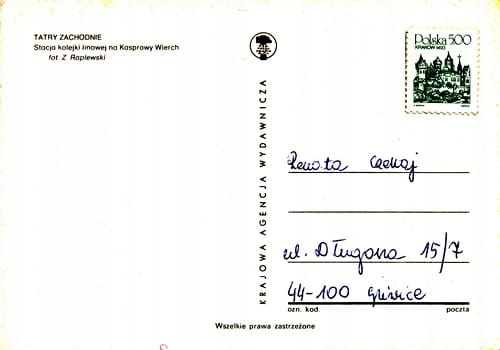 TATRY ZACHODNIE
Stacja kolejki linowej na Kasprowy Wierch
fot Z. Raplewski
KRAJOWA AGENCJA WYDAWNICZA
Polska 5.00
KRAKÓW 1493
Renata
ul. Długosza 15/7
44-100 Gliwice
ozn. kod. poczta
Wszelkie prawa zastrzeżone